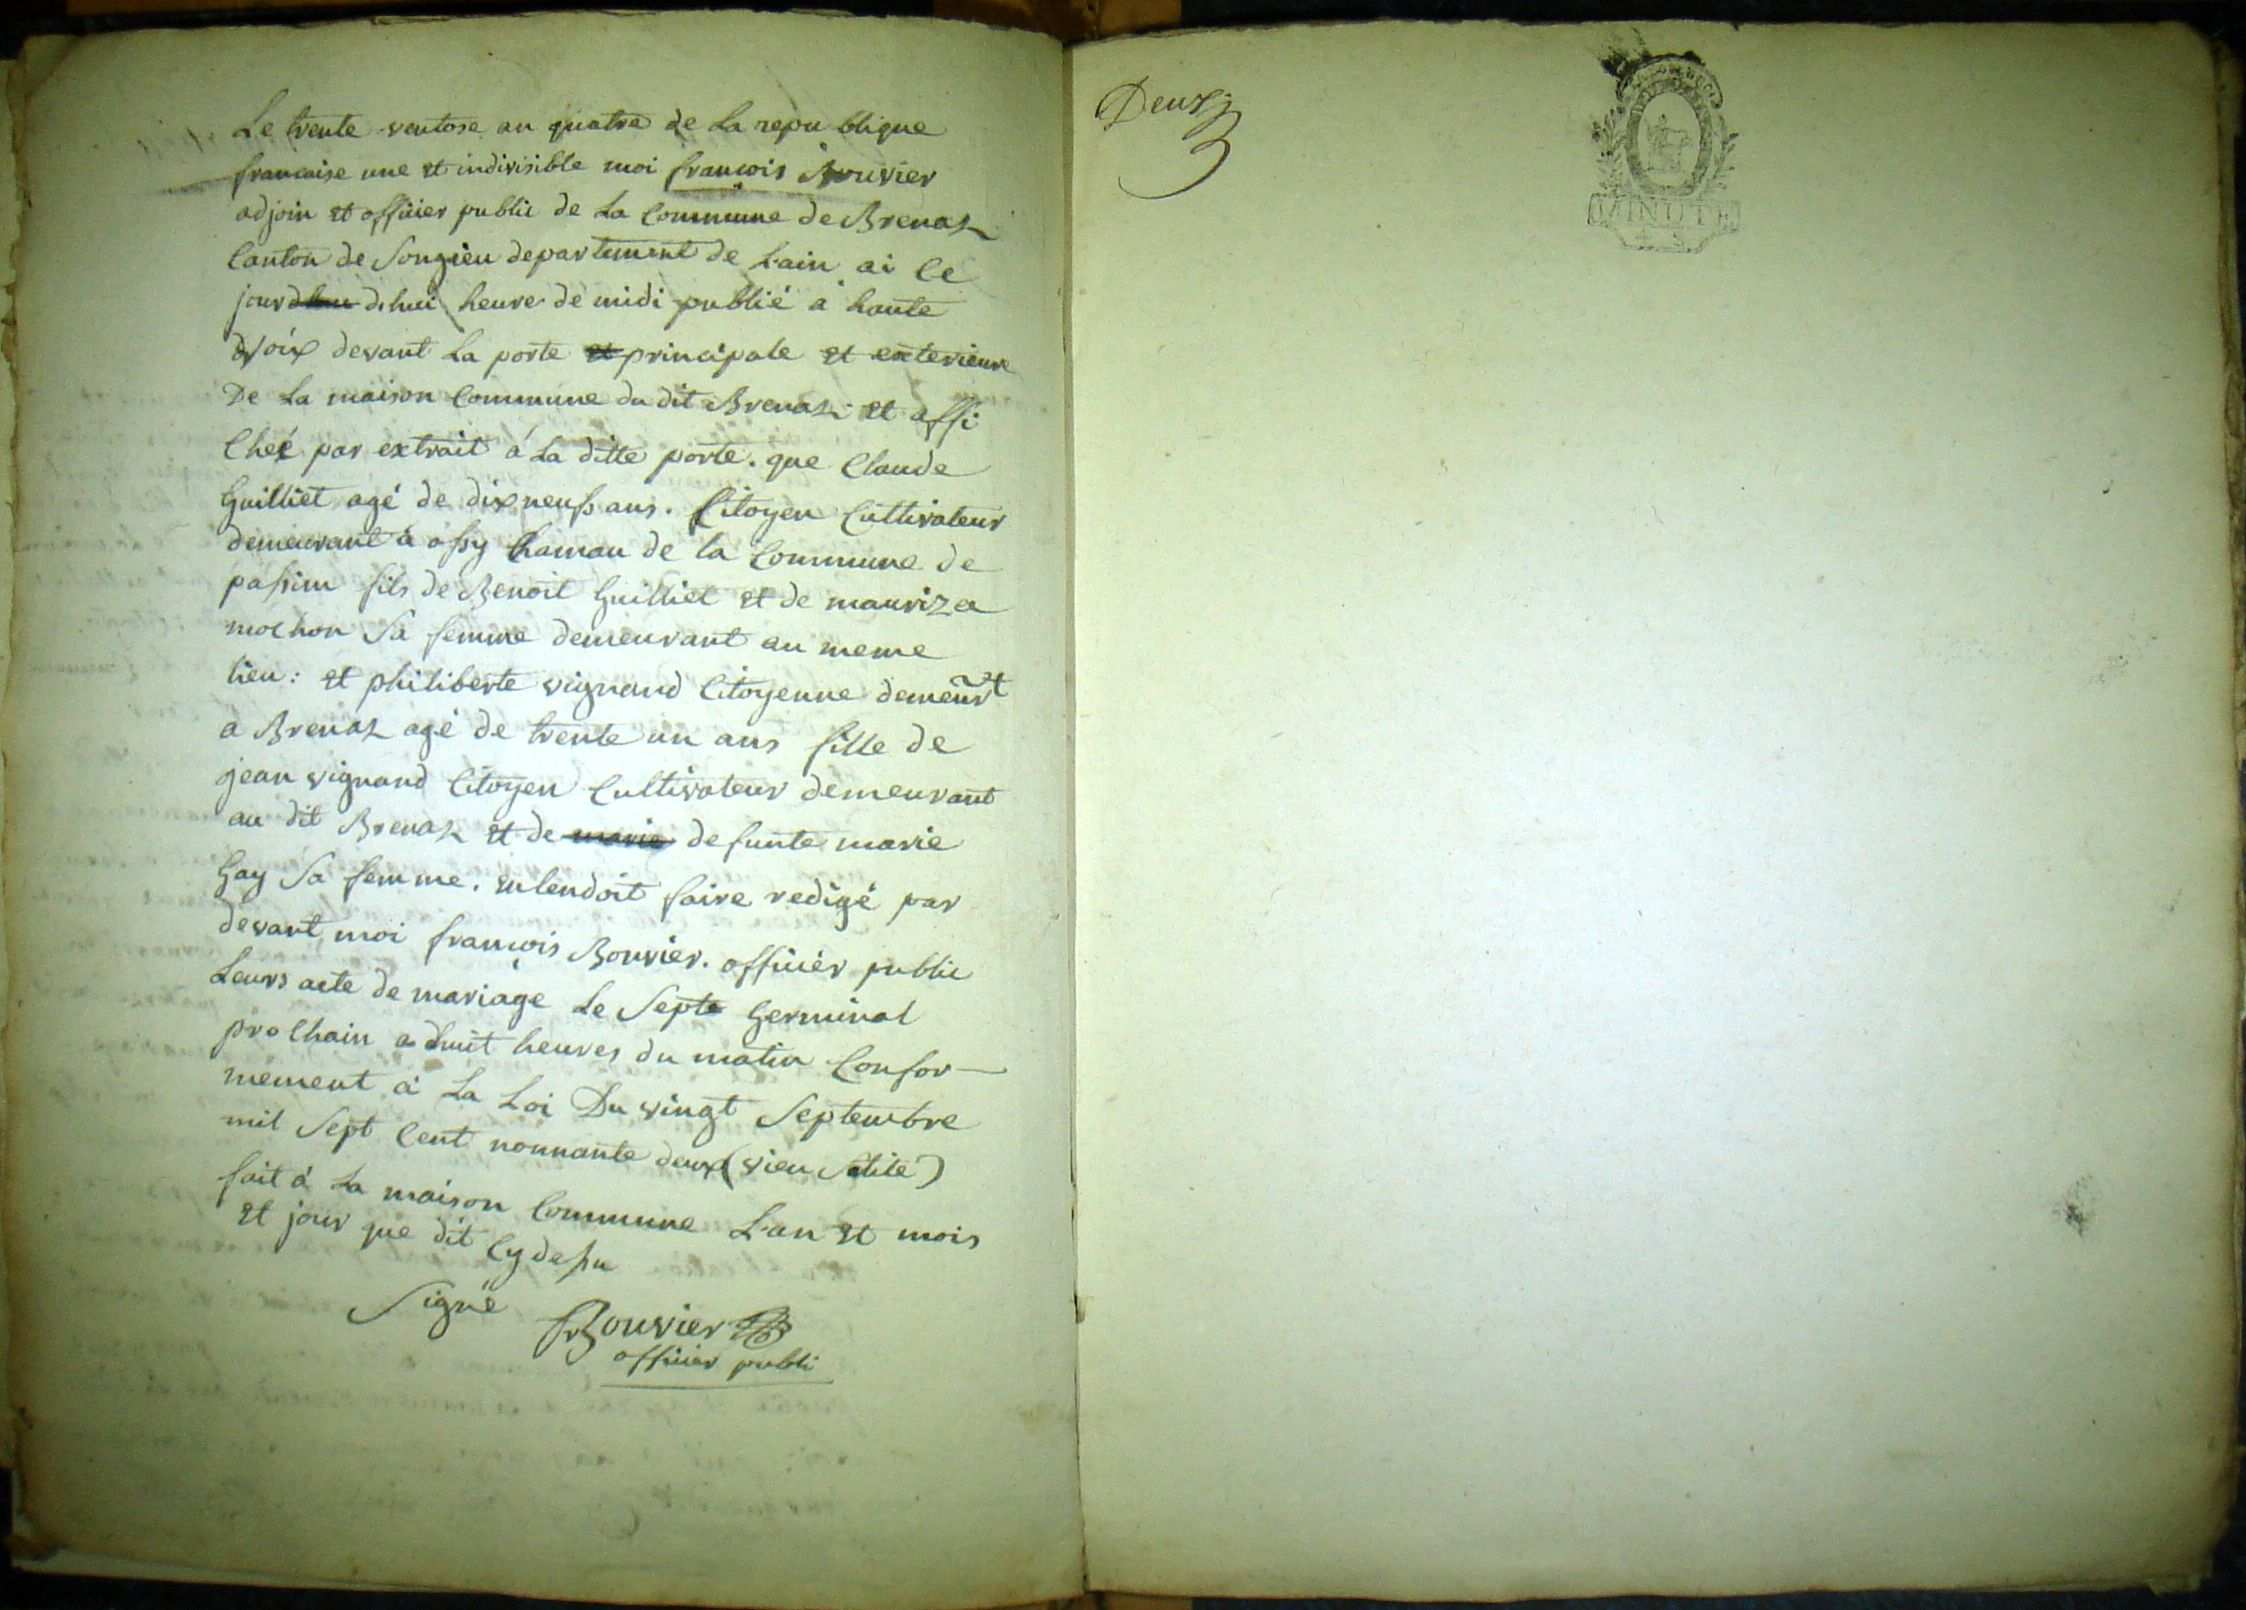 Le trente ventose an quatre de La republique
francaise une et indivisible moi françois Bouvier
adjoin et officier public de La Commune de Brenaz
Canton de Songieu departement de L'ain ai Ce
jour d'hui heure de midi publié a haute
voix devant La porte principale et exterieure
De La maison Commune du dit Brenaz et affi
Cheé par extrait á La ditte porte. que Claude
Guilliet agé de dix neuf ans. Citoyen Cultivateur
demeurant a assy hamau de la Commune de
passin fils de Benoit Guilliet et de mauriza
mochon Sa femme demeurant au meme
lieu: et philiberte vignand Citoyenne demeurt
a Brenaz agé de trente un ans fille de
jean vignand Citoyen Cultivateur demeurant
au dit Brenaz et de marie defunte marie
Gay Sa femme. entendoit faire redigé par
devant moi françois Bouvier. officier public
Leurs acte de mariage Le Septe Germinal
prochain a huit heures du matin Confor-
mement a La Loi Du vingt Septembre
mil Sept Cent nonnante deux (vieu Stile)
fait á La maison Commune L'an et mois
et jour que dit Cy dessu
Signé Bouvier
officier publi
Deux
MINUTE